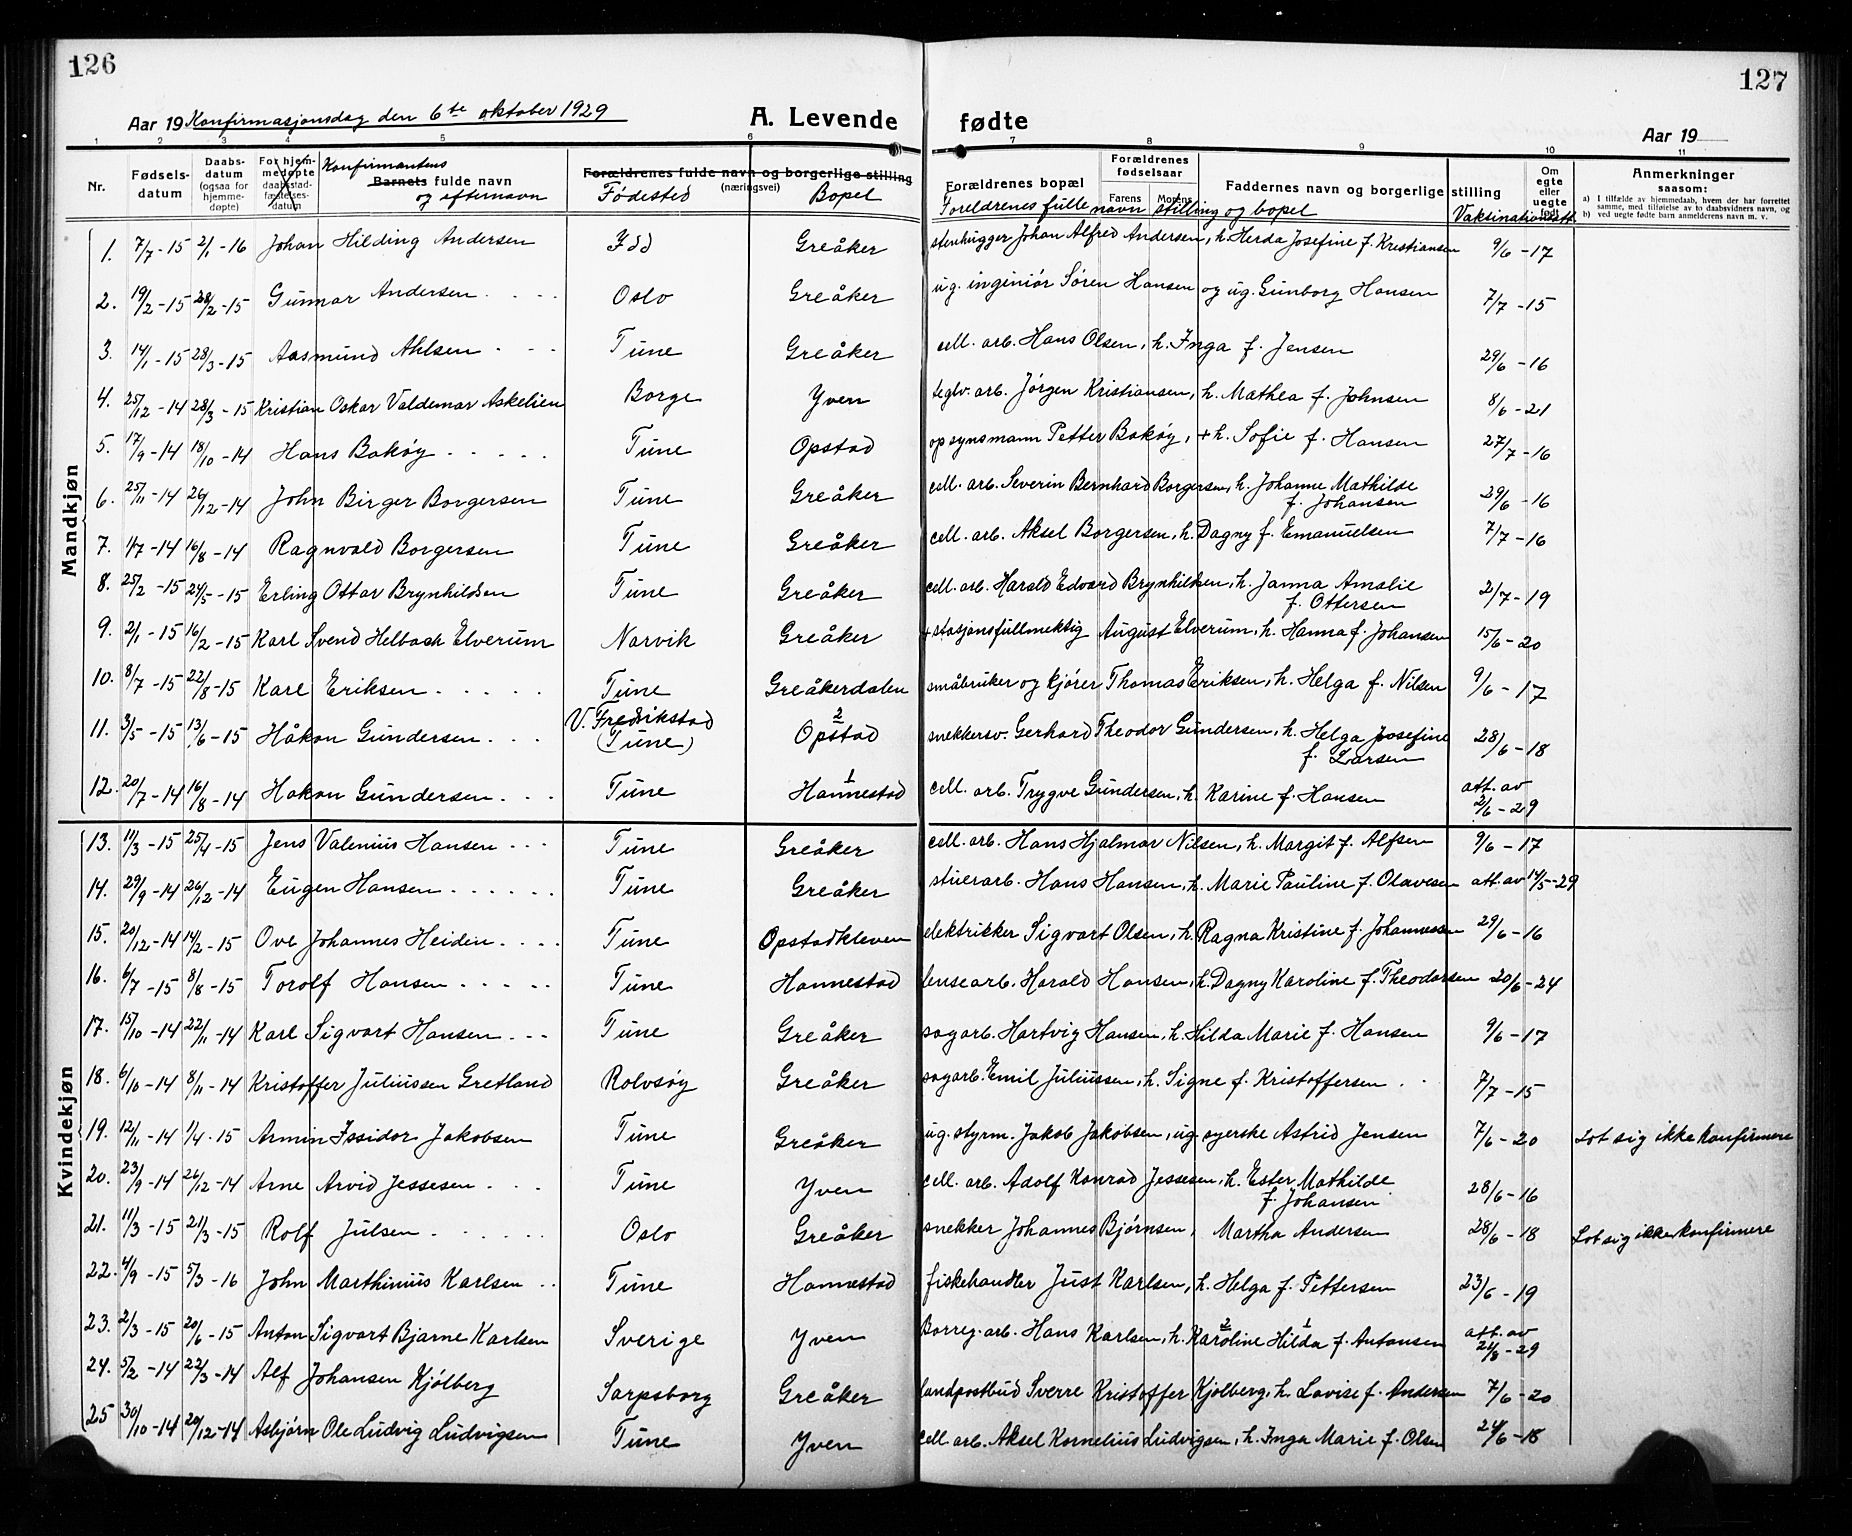 126
127
Aar 19 Konfirmasjonsdag den 6te oktober 1929
A. Levende fødte
Aar 19
1 2 3 4 5 6 7 8 9 10 11
Nr.
Fødsels-datum
Daabs-datum (ogsaa for hjemme-døpte)
For hjem-medøpte daabsstad-fæstelses-datum
Konfirmantens
Barnets fulde navn
og efternavn
Forældrenes fulde navn og borgerlige stilling
(næringsvei)
Fødested
Bopel
Forældrenes bopæl
Forældrenes fødselsaar
Farens Morens
Faddernes navn og borgerlige stilling
Foreldrenes fulle navn stilling og bopel
Om egte eller uegte født
Vaksinationsatt.
Anmerkninger
saasom:
a) I tilfælde av hjemmedaab, hvem der har forrettet samme, med tilføielse av to daabsvidners navn, og
b) ved uegte fødte barn anmelderens navn m. v.
Mandkjøn
1. 7/7-15 2/1-16 Johan Hilding Andersen Idd Greåker stenhugger Johan Alfred Andersen, h. Herda Josefine f. Kristiansen 9/6-17
2. 19/2-15 28/2-15 Gunnar Andersen Oslo Greåker ug. ingeniør Søren Hansen og ug. Gunborg Hansen 7/7-15
3. 14/1-15 28/3-15 Aasmund Ahlsen Tune Greåker cell. arb. Hans Olsen, h. Inga f. Jensen 29/6-16
4. 25/12-14 28/3-15 Kristian Oskar Valdemar Askelien Borge Yven teglv. arb. Jørgen Kristiansen, h. Mathea f. Johnsen 8/6-21
5. 17/9-14 18/10-14 Hans Bakøy Tune Opstad opsynsmann Petter Bakøy, + h. Sofie f. Hansen 27/7-16
6. 25/11-14 26/12-14 John Birger Borgersen Tune Greåker cell. arb. Severin Bernhard Borgersen, h. Johanne Mathilde f. Johansen 29/6-16
7. 1/7-14 16/8-14 Ragnvald Borgersen Tune Greåker cell. arb. Aksel Borgersen, h. Dagny f. Emanuelsen 7/7-16
8. 25/2-15 24/5-15 Erling Ottar Brynhildsen Tune Greåker cell. arb. Harald Edvard Brynhildsen, h. Janna Amalie f. Ottersen 2/7-19
9. 2/1-15 16/2-15 Karl Svend Helbach Elverum Narvik Greåker + stasjonsfullmektig August Elverum, h. Hanna f. Johansen 15/6-20
10. 8/7-15 22/8-15 Karl Eriksen Tune Greåkerdalen småbruker og kjører Thomas Eriksen, h. Helga f. Nilsen 9/6-17
11. 3/5-15 13/6-15 Håkon Gundersen V. Fredrikstad (Tune) 2 Opstad snekkersv. Gerhard Theodor Gundersen, h. Helga Josefine f. Larsen 28/6-18
12. 20/7-14 16/8-14 Hakon Gundersen Tune 1 Hannestad cell. arb. Trygve Gundersen, h. Karine f. Hansen att. av 2/6-29
Kvindekjøn
13. 11/3-15 25/4-15 Jens Valenius Hansen Tune Greåker cell. arb. Hans Hjalmar Nilsen, h. Margit f. Alfsen 9/6-17
14. 29/9-14 26/12-14 Eugen Hansen Tune Greåker stuerarb. Hans Hansen, h. Marie Pauline f. Olavesen att. av 14/5-29
15. 20/12-14 14/2-15 Ove Johannes Heiden Tune Opstadkleven elektrikker Sigvart Olsen, h. Ragna Kristine f. Johannessen 29/6-16
16. 6/7-15 8/8-15 Torolf Hansen Tune Hannestad lensearb. Harald Hansen, h. Dagny Karoline f. Theodorsen 20/6-24
17. 15/10-14 22/11-14 Karl Sigvart Hansen Tune Greåker sagarb. Hartvig Hansen, h. Hilda Marie f. Hansen 9/6-17
18. 6/10-14 8/11-14 Kristoffer Juliussen Gretland Rolvsøy Greåker sagarb. Emil Juliussen, h. Signe f. Kristoffersen 7/7-15
19. 12/11-14 1/4-15 Armin Issidor Jakobsen Tune Greåker ug. styrm. Jakob Jakobsen, ug. syerske Astrid Jensen 7/6-20 Lot sig ikke konfirmere
20. 23/9-14 26/12-14 Arne Arvid Jessesen Tune Yven cell. arb. Adolf Konrad Jessesen, h. Ester Mathilde f. Johansen 28/6-16
21. 11/3-15 21/3-15 Rolf Julsen Oslo Greåker snekker Johannes Bjørnsen, Martha Andersen 28/6-18 Lot sig ikke konfirmere
22. 4/9-15 5/3-16 John Marthinius Karlsen Tune Hannestad fiskehandler Just Karlsen, h. Helga f. Pettersen 23/6-19
23. 2/3-15 20/6-15 Anton Sigvart Bjarne Karlsen Sverige Yven Borreg. arb. Hans Karlsen, h. 2 Karoline 1 Hilda f. Antonsen att. av 21/8-29
24. 5/2-14 22/3-14 Alf Johansen Kjølberg Sarpsborg Greåker landpostbud Sverre Kristoffer Kjølberg, h. Lovise f. Andersen 7/6-20
25 30/10-14 20/12-14 Asbjørn Ole Ludvig Ludvigsen Tune Yven cell. arb. Aksel Kornelius Ludvigsen, h. Inga Marie f. Olsen 24/6-18